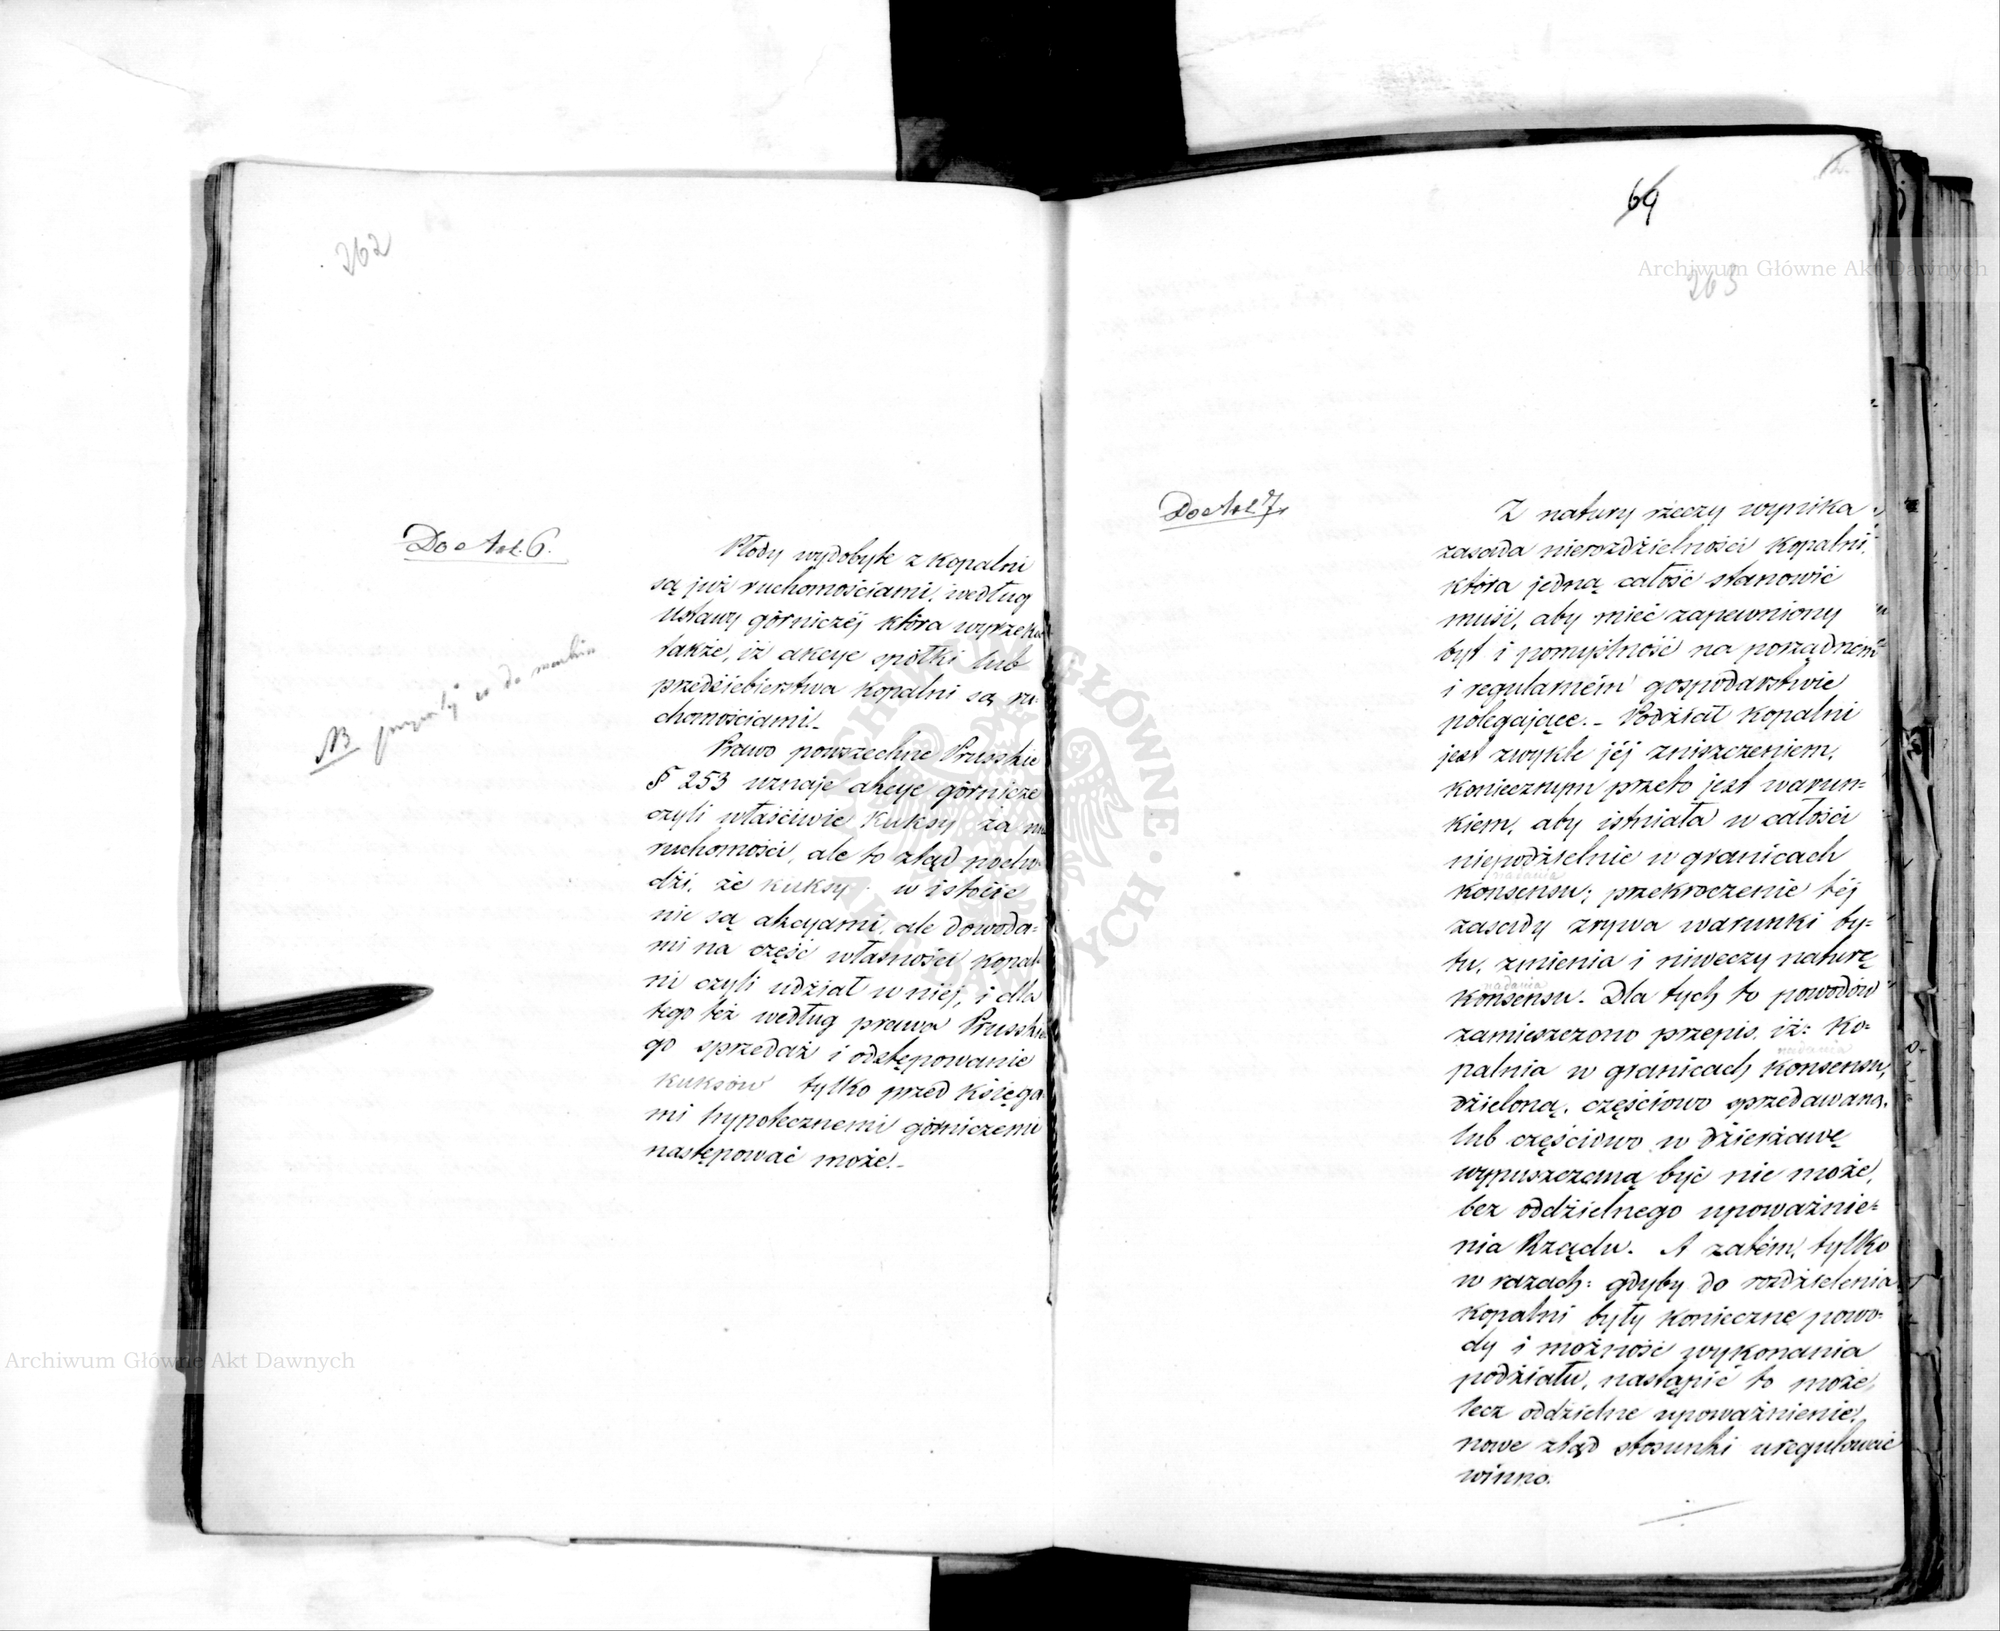 262
Do Art. 6.
NB
Płody wydobyte z kopalni
są już ruchomościami, według
ustawy górniczéj która wyrzekła
także, iż akcye spółki lub
przedsiebierstwa kopalni są ru-
chomościami._
Prawo powszechne Prusskie
§ 253 uznaje akcye górnicze
czyli właściwie kuksy za nie
ruchomości, ale to ztąd pocho-
dzi, że kuksy w istocie
nie są akcyami, ale dowoda=
mi na część własności kopal-
ni czyli udział w niéj, i dla
tego téż według prawa Prusskie
go sprzedaż i odstępowanie
kuksów tylko przed księga-
mi hypotecznemi górniczemi
następować może._
69
263
Do Art 7.
Z natury rzeczy wynika
zasada nierozdzielności kopalni,
która jedną całość stanowić
musi, aby mieć zapewniony
byt i pomyślność na porządném
i regularném gospodarstwie
polegające._ Podział kopalni
jest zwykle jéj zniszczeniem,
koniecznym przeto jest warun=
kiem, aby istniała w całości
niepodzielnie w granicach
nadania
konsensu; przekroczenie téj
zasady zrywa warunki by=
tu, zmienia i niweczy naturę
nadania
konsensu. Dla tych to powodów
zamieszczono przepis, iż: ko=
nadania
palnia w granicach konsensu,
dzieloną, częściowo sprzedawaną,
lub częściowo w dzierżawę
wypuszczaną być nie może,
bez oddzielnego upoważnie=
nia Rządu. A zatém, tylko
w razach: gdyby do rozdzielenia
kopalni były konieczne powo=
dy i możność wykonania
podziału, nastąpić to może,
lecz oddzielne upoważnienie,
nowe ztąd stosunki uregulować
winno.
Archiwum Główne Akt Dawnych
Archiwum Główne Akt Dawnych
ARCHIWUM GŁÓWNE AKT DAWNYCH